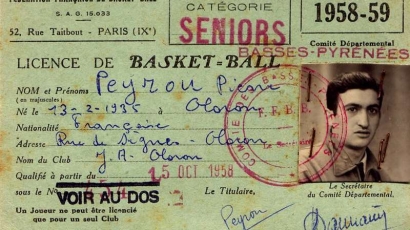 FÉDÉRATION FRANÇAISE DE BASKET-BALL
S. A. G. 15.033
52, Rue Taitbout - PARIS (IX°)
CATÉGORIE
SENIORS
1958-59
Comité Départemental
BASSES-PYRENEES
LICENCE DE BASKET-BALL
NOM et Prénoms Peyrou
(en majuscules)
Né le 13-2-1935 à Oloron
Nationalité Française
Adresse Rue de - Oloron
Nom du Club J.A. Oloron
Qualifié à partir du 15 OCT. 1958
sous le N°
VOIR AU DOS
Le Titulaire,
Le Secrétaire
du Comité Départemental,
Un Joueur ne peut être licencié
que pour un seul Club
Peyrou
F.F.B.B.